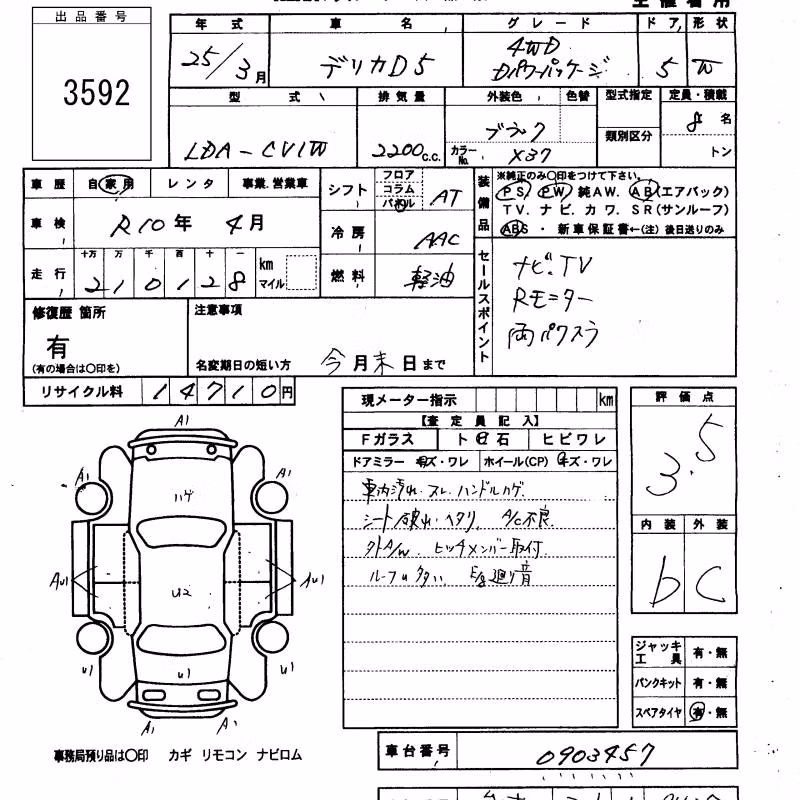 主催者用
出品番号
3592
年式 車名 グレード ドア 形状
25/3月 デリカD5 4WD Dパワーパッケージ 5 W
型式 排気量 外装色 色替 型式指定 定員・積載
LDA-CV1W 2200c.c. ブラック カラーNo. X37 類別区分 8名 トン
車歴 自家用 レンタ 事業.営業車
車検 R10年 4月
走行 十万 万 千 百 十 一
210128 km マイル
シフト フロア コラム パネル AT
冷房 AAC
燃料 軽油
装備品 ※純正のみ〇印をつけて下さい。
PS. PW 純AW. AB(エアバック)
TV. ナビ. カワ. SR(サンルーフ)
ABS ・ 新車保証書←(注) 後日送りのみ
セールスポイント
ナビ.TV
Rモニター
両パワスラ
修復歴 箇所
有
(有の場合は〇印を)
注意事項
名変期日の短い方 今月末日まで
リサイクル料 14710円
現メーター指示 km
【査定員記入】
Fガラス ト日石 ヒビワレ
ドアミラー キズ・ワレ ホイール(CP) キズ・ワレ
車内汚れ.スレ.ハンドルハゲ.
シート破れ.ヘタリ. A/C不良.
外A/W. ヒッチメンバー取付.
ルーフU多い E/g廻り音
評価点
3.5
内装 外装
b C
ジャッキ 工具 有・無
パンクキット 有・無
スペアタイヤ 有・無
A1
A1 A1
ハゲ
AU1 U2 AU1
U1 U1 U1
A1 A1
事務局預り品は〇印 カギ リモコン ナビロム
車台番号 0903457